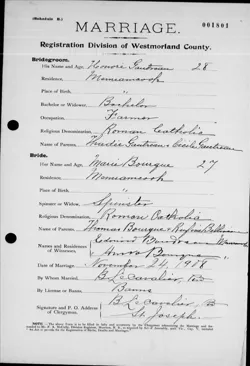 (Schedule B.)
001801
MARRIAGE.
Registration Division of Westmorland County.
Bridegroom.
His Name and Age, Honoré Gautreau 28
Residence, Memramcook
Place of Birth, "
Bachelor or Widower, Bachelor
Occupation, Farmer
Religious Denomination, Roman Catholic
Name of Parents, Gautreau Cécile Gautreau
Bride.
Her Name and Age, Marie Bourque 27
Residence, Memramcook
Place of Birth, "
Spinster or Widow, Spinster
Religious Denomination, Roman Catholic
Name of Parents, Thomas Bourque
Names and Residences of Witnesses, Edouard Boudreau
Bourque "
Date of Marriage, November 24, 1918
By Whom Married, B. LeCavalier,
By License or Banns, Banns
Signature and P. O. Address of Clergyman, B LeCavalier,
St. Joseph.